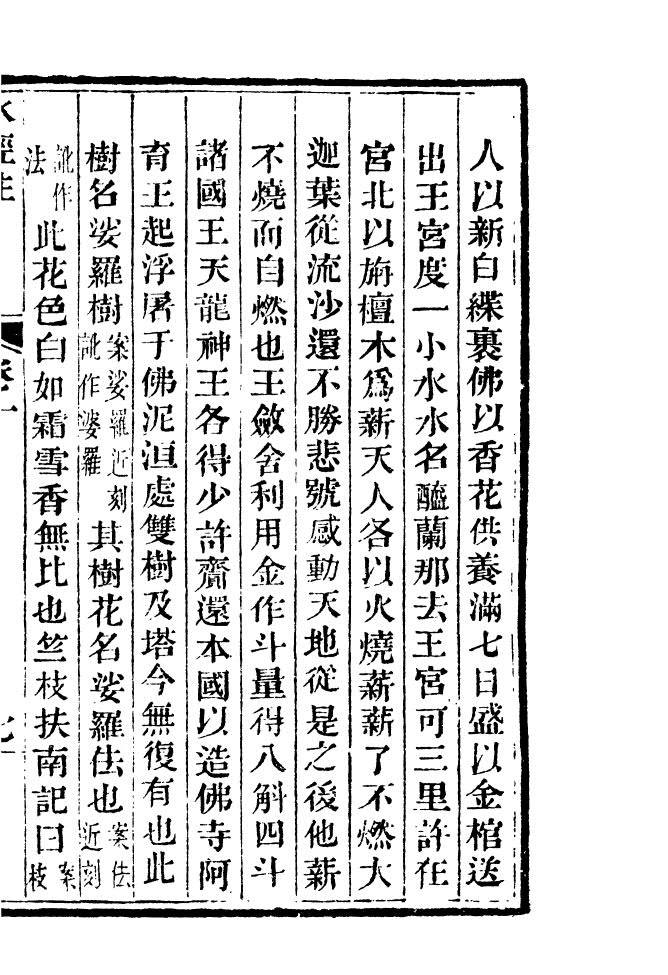 人以新白緤裹佛以香花供養滿七日盛以金棺送
出王宮度一小水水名醯蘭那去王宮可三里許在
宮北以旃檀木爲薪天人各以火燒薪薪了不燃大
迦葉從流沙還不勝悲號感動天地從是之後他薪
不燒而自燃也王斂舍利用金作斗量得八斛四斗
諸國王天龍神王各得少許齎還本國以造佛寺阿
育王起浮屠于佛泥洹處雙樹及塔今無復有也此
樹名娑羅樹案娑羅近刻訛作婆羅其樹花名娑羅佉也案佉近刻
訛作法此花色白如霜雪香無比也竺枝扶南記曰案枝
水經注 卷一